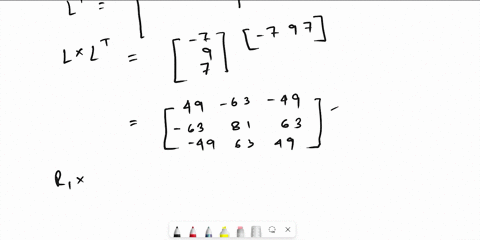 L^T = [
L × L^T = [ -7 9 7 ] [ -7 9 7 ]
= [ 49 -63 -49
-63 81 63
-49 63 49 ]
R₁ ×